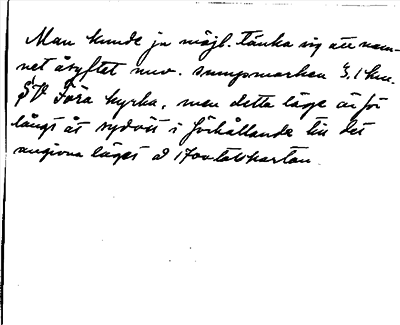 Man kunde ju möjl. tänka sig att nam-
net åsyftet nuv. sumpmarken 3,1 km.
SV Föra kyrka, men detta läge är för
långt åt sydost i förhållande till det
angivna läget å 1700talskartan.